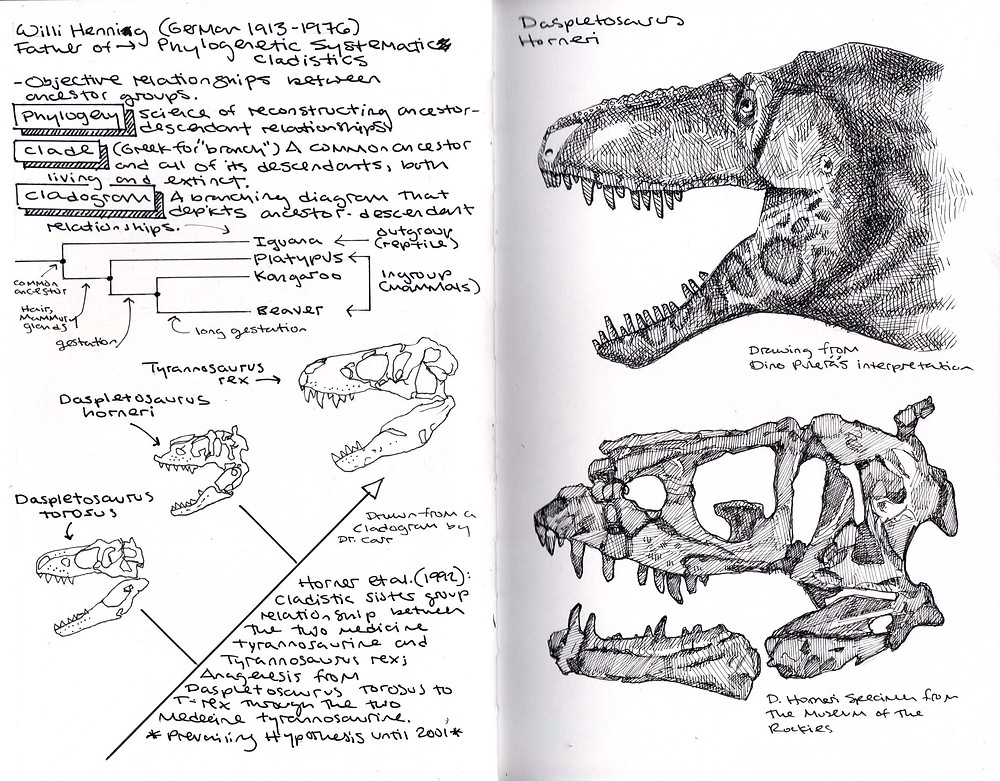 Willi Hennig (German 1913-1976)
Father of → Phylogenetic Systematics
Cladistics
- Objective relationships between
ancestor groups.
Phylogeny science of reconstructing ancestor-
descendant relationships
Clade (Greek for "branch") A common ancestor
and all of its descendants, both
living and extinct.
Cladogram A branching diagram that
depicts ancestor-descendant
relationships.
Iguana ← outgroup
(reptile)
Platypus
Kangaroo
Beaver
Ingroup
(mammals)
common
ancestor
Hair,
mammary
glands
gestation
long gestation
Tyrannosaurus
rex →
Daspletosaurus
horneri
Daspletosaurus
torosus
Drawn from a
Cladogram by
Dr. Carr
Horner et al. (1992):
Cladistic sister group
relationship between
the two medicine
tyrannosaurine and
Tyrannosaurus rex;
Anagenesis from
Daspletosaurus torosus to
T-rex through the two
Medecine tyrannosaurine.
*Prevailing Hypothesis until 2001*
Daspletosaurus
Horneri
Drawing from
Dino Pulerà's interpretation
D. Horneri Specimen from
The Museum of The
Rockies